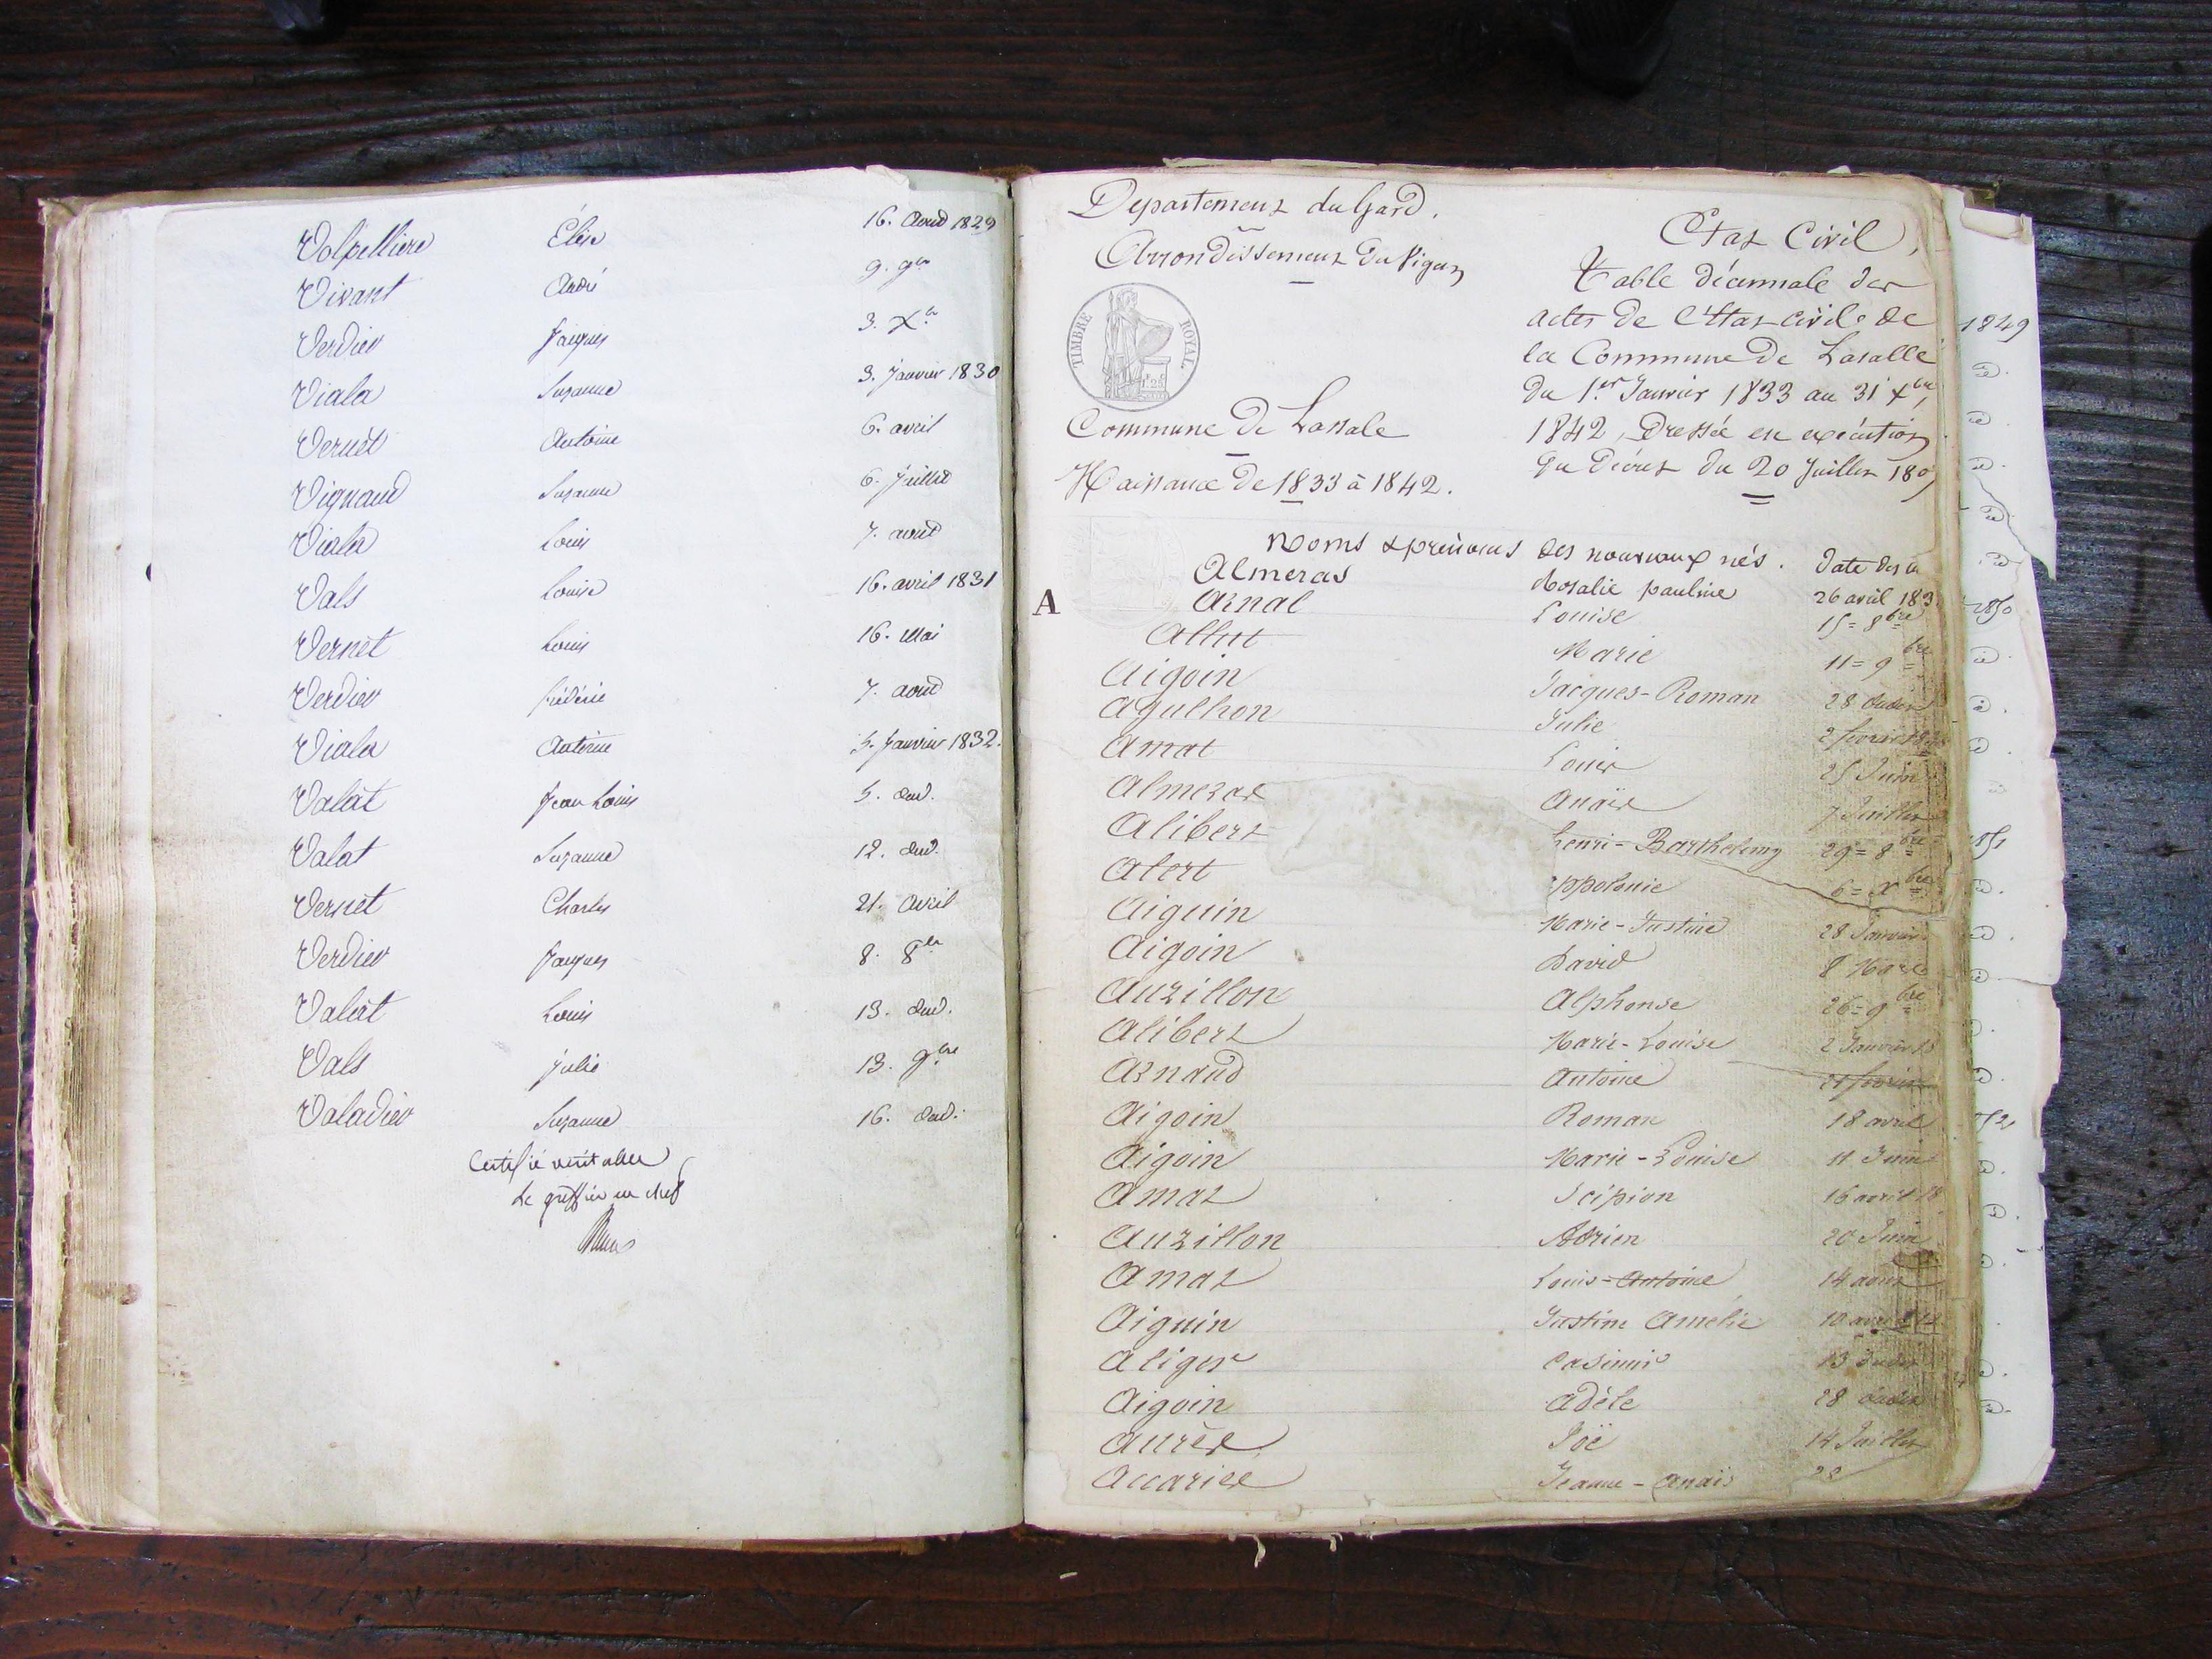 Volpelliere Élise 16. Aoud 1829
Vivant André 9. 9bre
Verdier Jacques 3. Xbre
Viala Suzanne 3. Janvier 1830
Vernet Antoine 6. avril
Vignaud Suzanne 6. Juillet
Viala Louis 7. aout
Vals Louise 16. avril 1831
Vernet Louis 16. Mai
Verdier frédéric 7. aout
Viala Antoine 5. Janvier 1832.
Valat Jean Louis 5. dud.
Valat Suzanne 12. dud.
Vernet Charles 21. Avril
Verdier Jacques 8. 8bre
Valat Louis 13. dud.
Vals Julie 13. 9bre
Valadier Suzanne 16. dud.
Certifié véritable
Le greffier en chef
Departement du Gard.
Arrondissement du Vigan
TIMBRE ROYAL
Commune De Lassale
Naissance De 1833 à 1842.
Etat Civil,
Table décennale des
actes de l'Etat civil de
la Commune De Lasalle
du 1er Janvier 1833 au 31 Xbre
1842, Dressée en exécution
du Décret du 20 Juillet 180
Noms & prénoms des nouveaux nés. date des
A
Almeras Rosalie pauline 26 avril 183
Arnal Louise 15 = 8bre
Allut Marie 11 = 9bre
Aigoin Jacques-Roman 28 dudit
Agulhon Julie 2 fevrier
Amat Louis 25 Juin
Almeras Anaïs 7 Juillet
Alibert henri-Barthelemy 29 = 8bre
Alert ppolonie 6 = Xbre
Aiguin Marie-Justine 28 Janvier
Aigoin David 8 Mars
Auzillon Alphonse 26 = 9bre
Alibert Marie-Louise 2 Janvier 18
Arnaud Antoine 21 fevrier
Aigoin Roman 18 avril
Aigoin Marie-Louise 11 Juin
Amat Scipion 16 avril 18
Auzillon Adrien 20 Juin
Amat Louis-Antoine 14 aout
Aiguin Justine Amelie 10
Aliger Casimir 13 dudit
Aigoin adèle 28 dudit
Aurès Zoé 14 Juillet
Accariès Jeanne-Anaïs 28
1849
1850